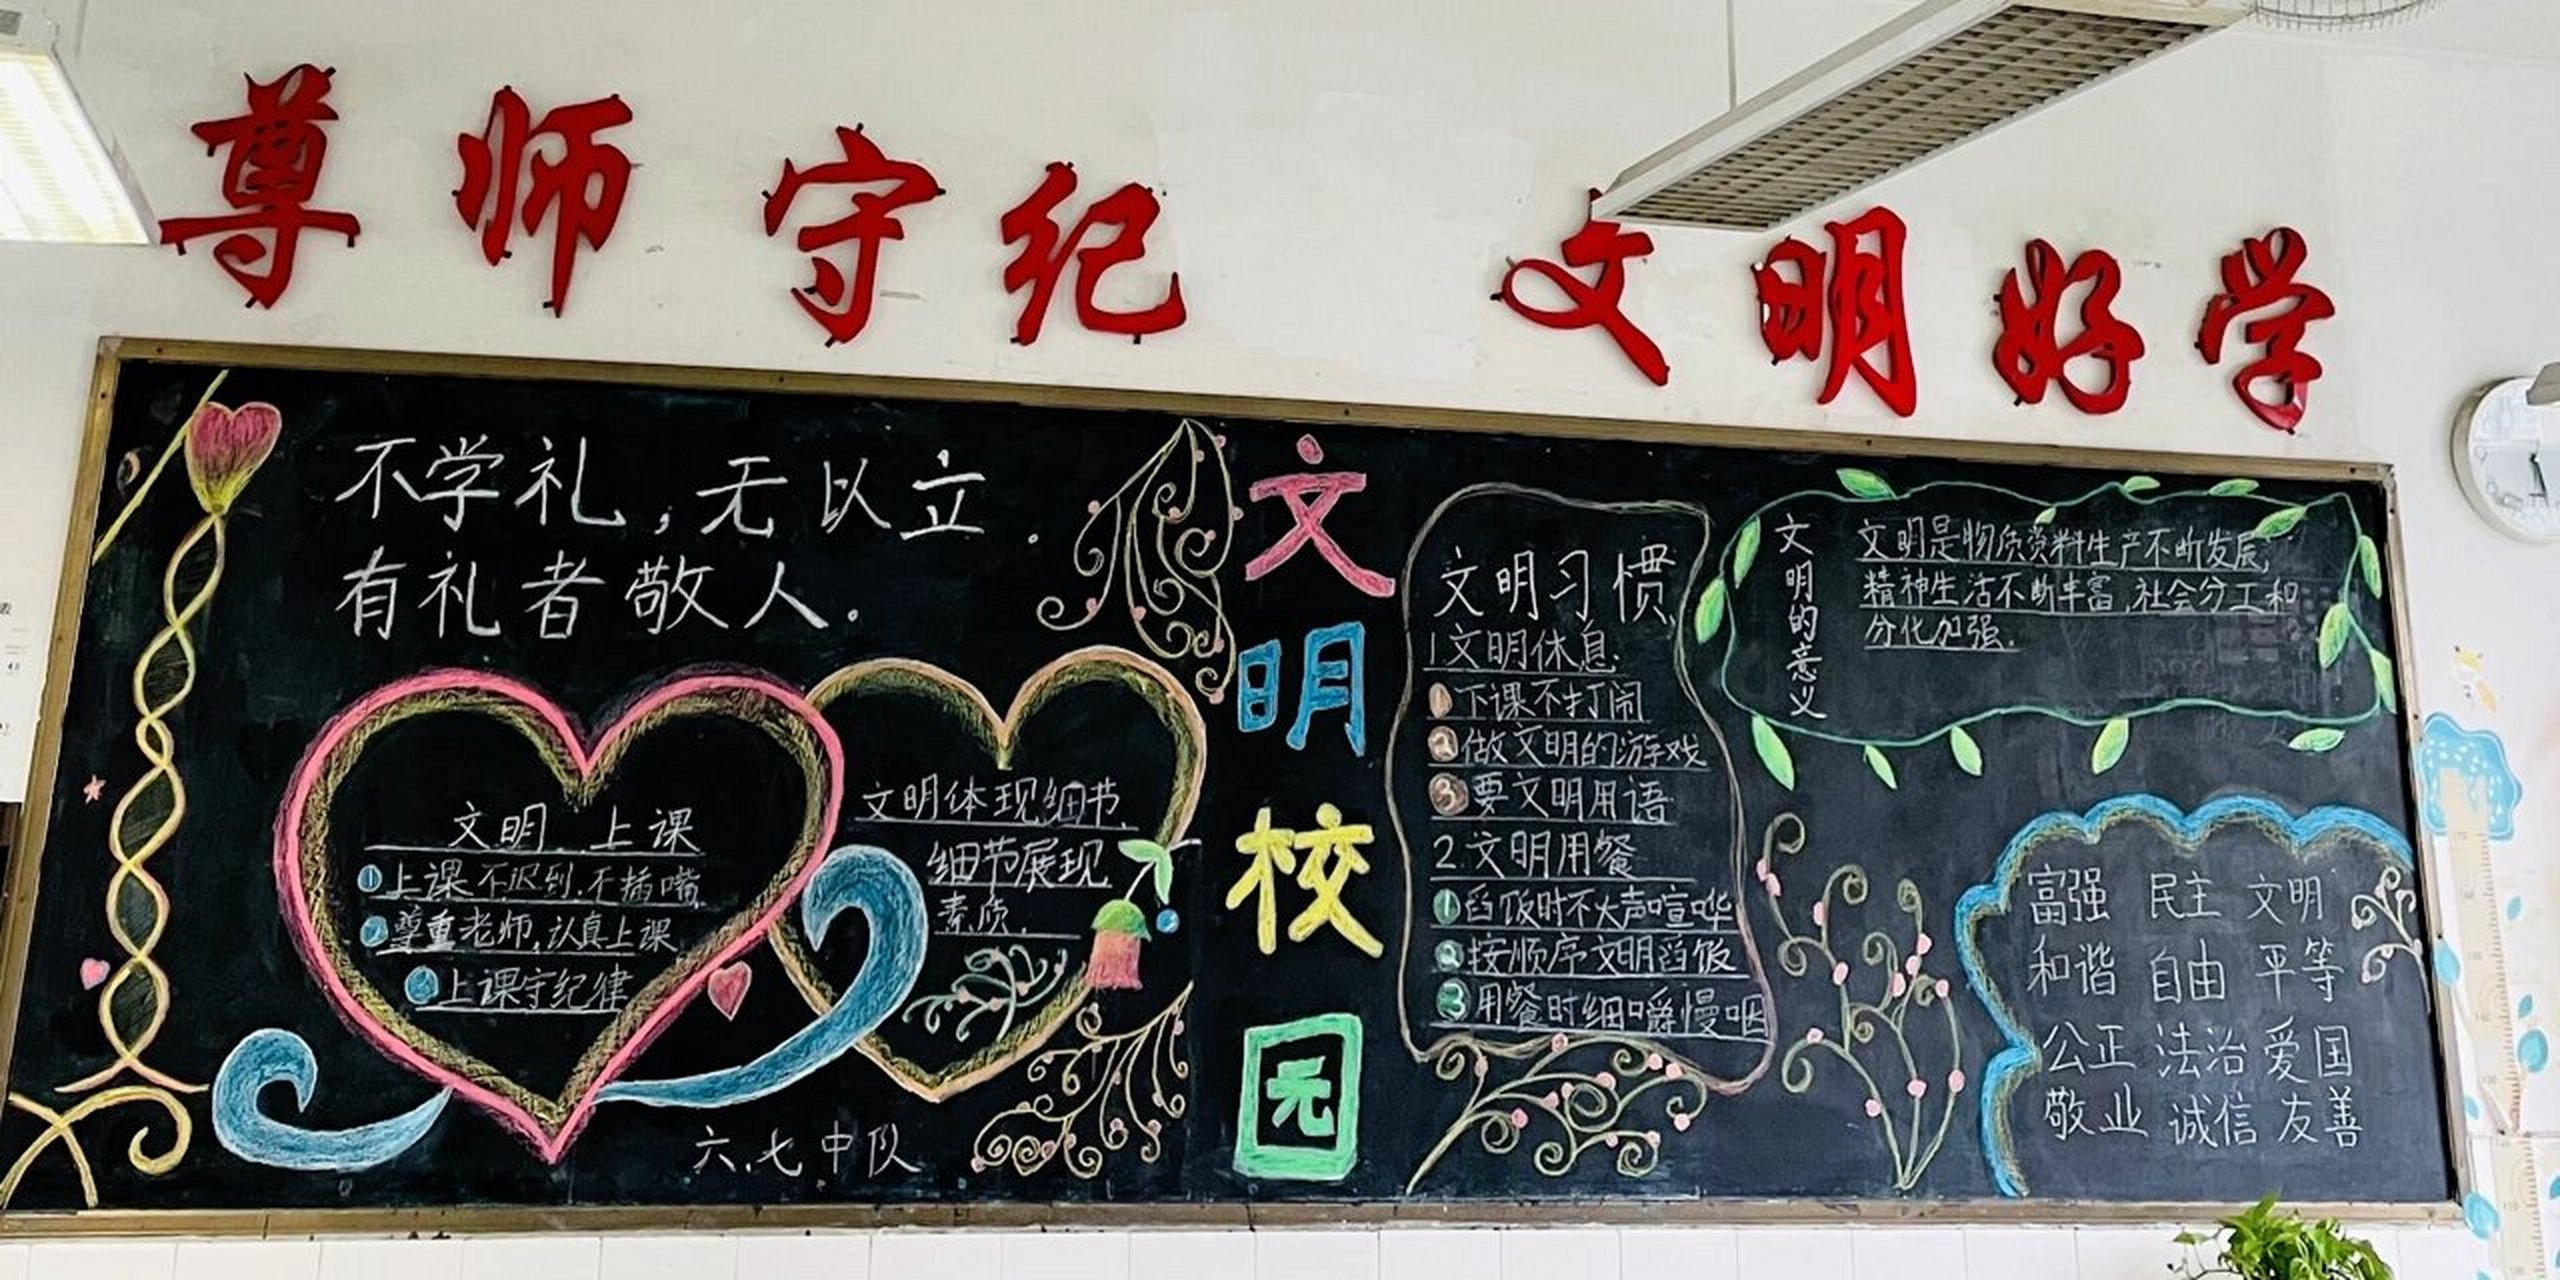 尊师守纪 文明好学
不学礼，无以立.
有礼者敬人.
文明 上课
①上课不迟到.不插嘴.
②尊重老师,认真上课
③上课守纪律
文明体现细节.
细节展现
素质.
六.七中队
文明校园
文明习惯
1.文明休息.
①下课不打闹
②做文明的游戏
③要文明用语
2.文明用餐
①舀饭时不大声喧哗
②按顺序文明舀饭
③用餐时细嚼慢咽
文明的意义
文明是物质资料生产不断发展,
精神生活不断丰富,社会分工和
分化加强.
富强 民主 文明
和谐 自由 平等
公正 法治 爱国
敬业 诚信 友善